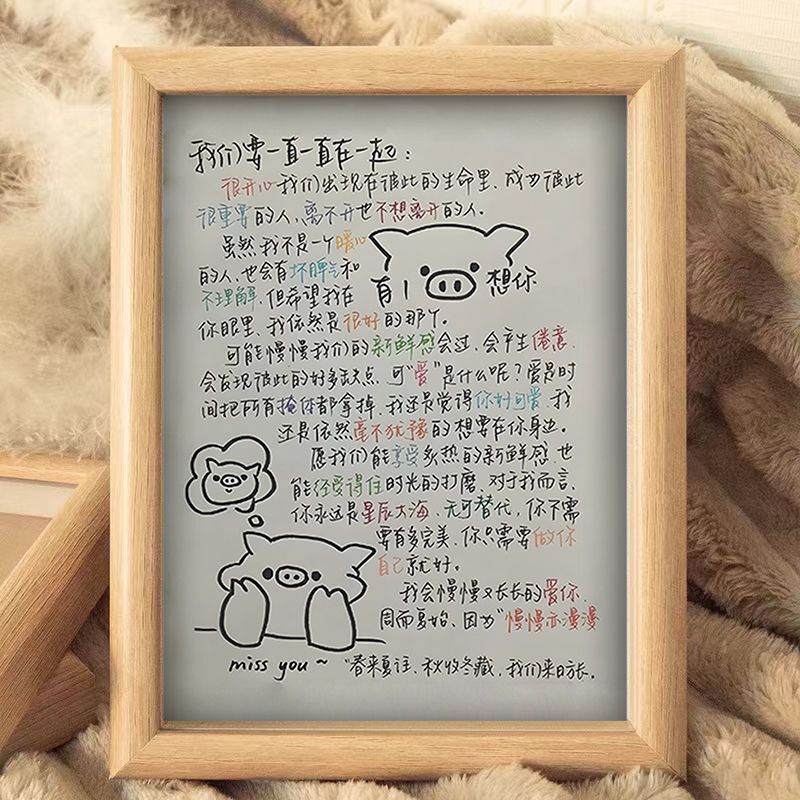 我们要一直一直在一起:
很开心我们出现在彼此的生命里、成为彼此
很重要的人,离不开也不想离开的人.
虽然我不是一个暖心
的人、也会有坏脾气和
不理解、但希望我在
有 | 想你
你眼里、我依然是很好的那个.
可能慢慢我们的新鲜感会过、会产生倦意、
会发现彼此的好多缺点、可“爱”是什么呢?爱是时
间把所有掩体都拿掉、我还是觉得你好可爱、我
还是依然毫不犹豫的想要在你身边。
愿我们能享受炙热的新鲜感、也
能经受得住时光的打磨、对于我而言、
你永远是星辰大海、无可替代、你不需
要有多完美、你只需要做你
自己就好。
我会慢慢又长长的爱你、
周而复始、因为“慢慢亦漫漫
miss you ~ “春来夏往、秋收冬藏、我们来日方长。